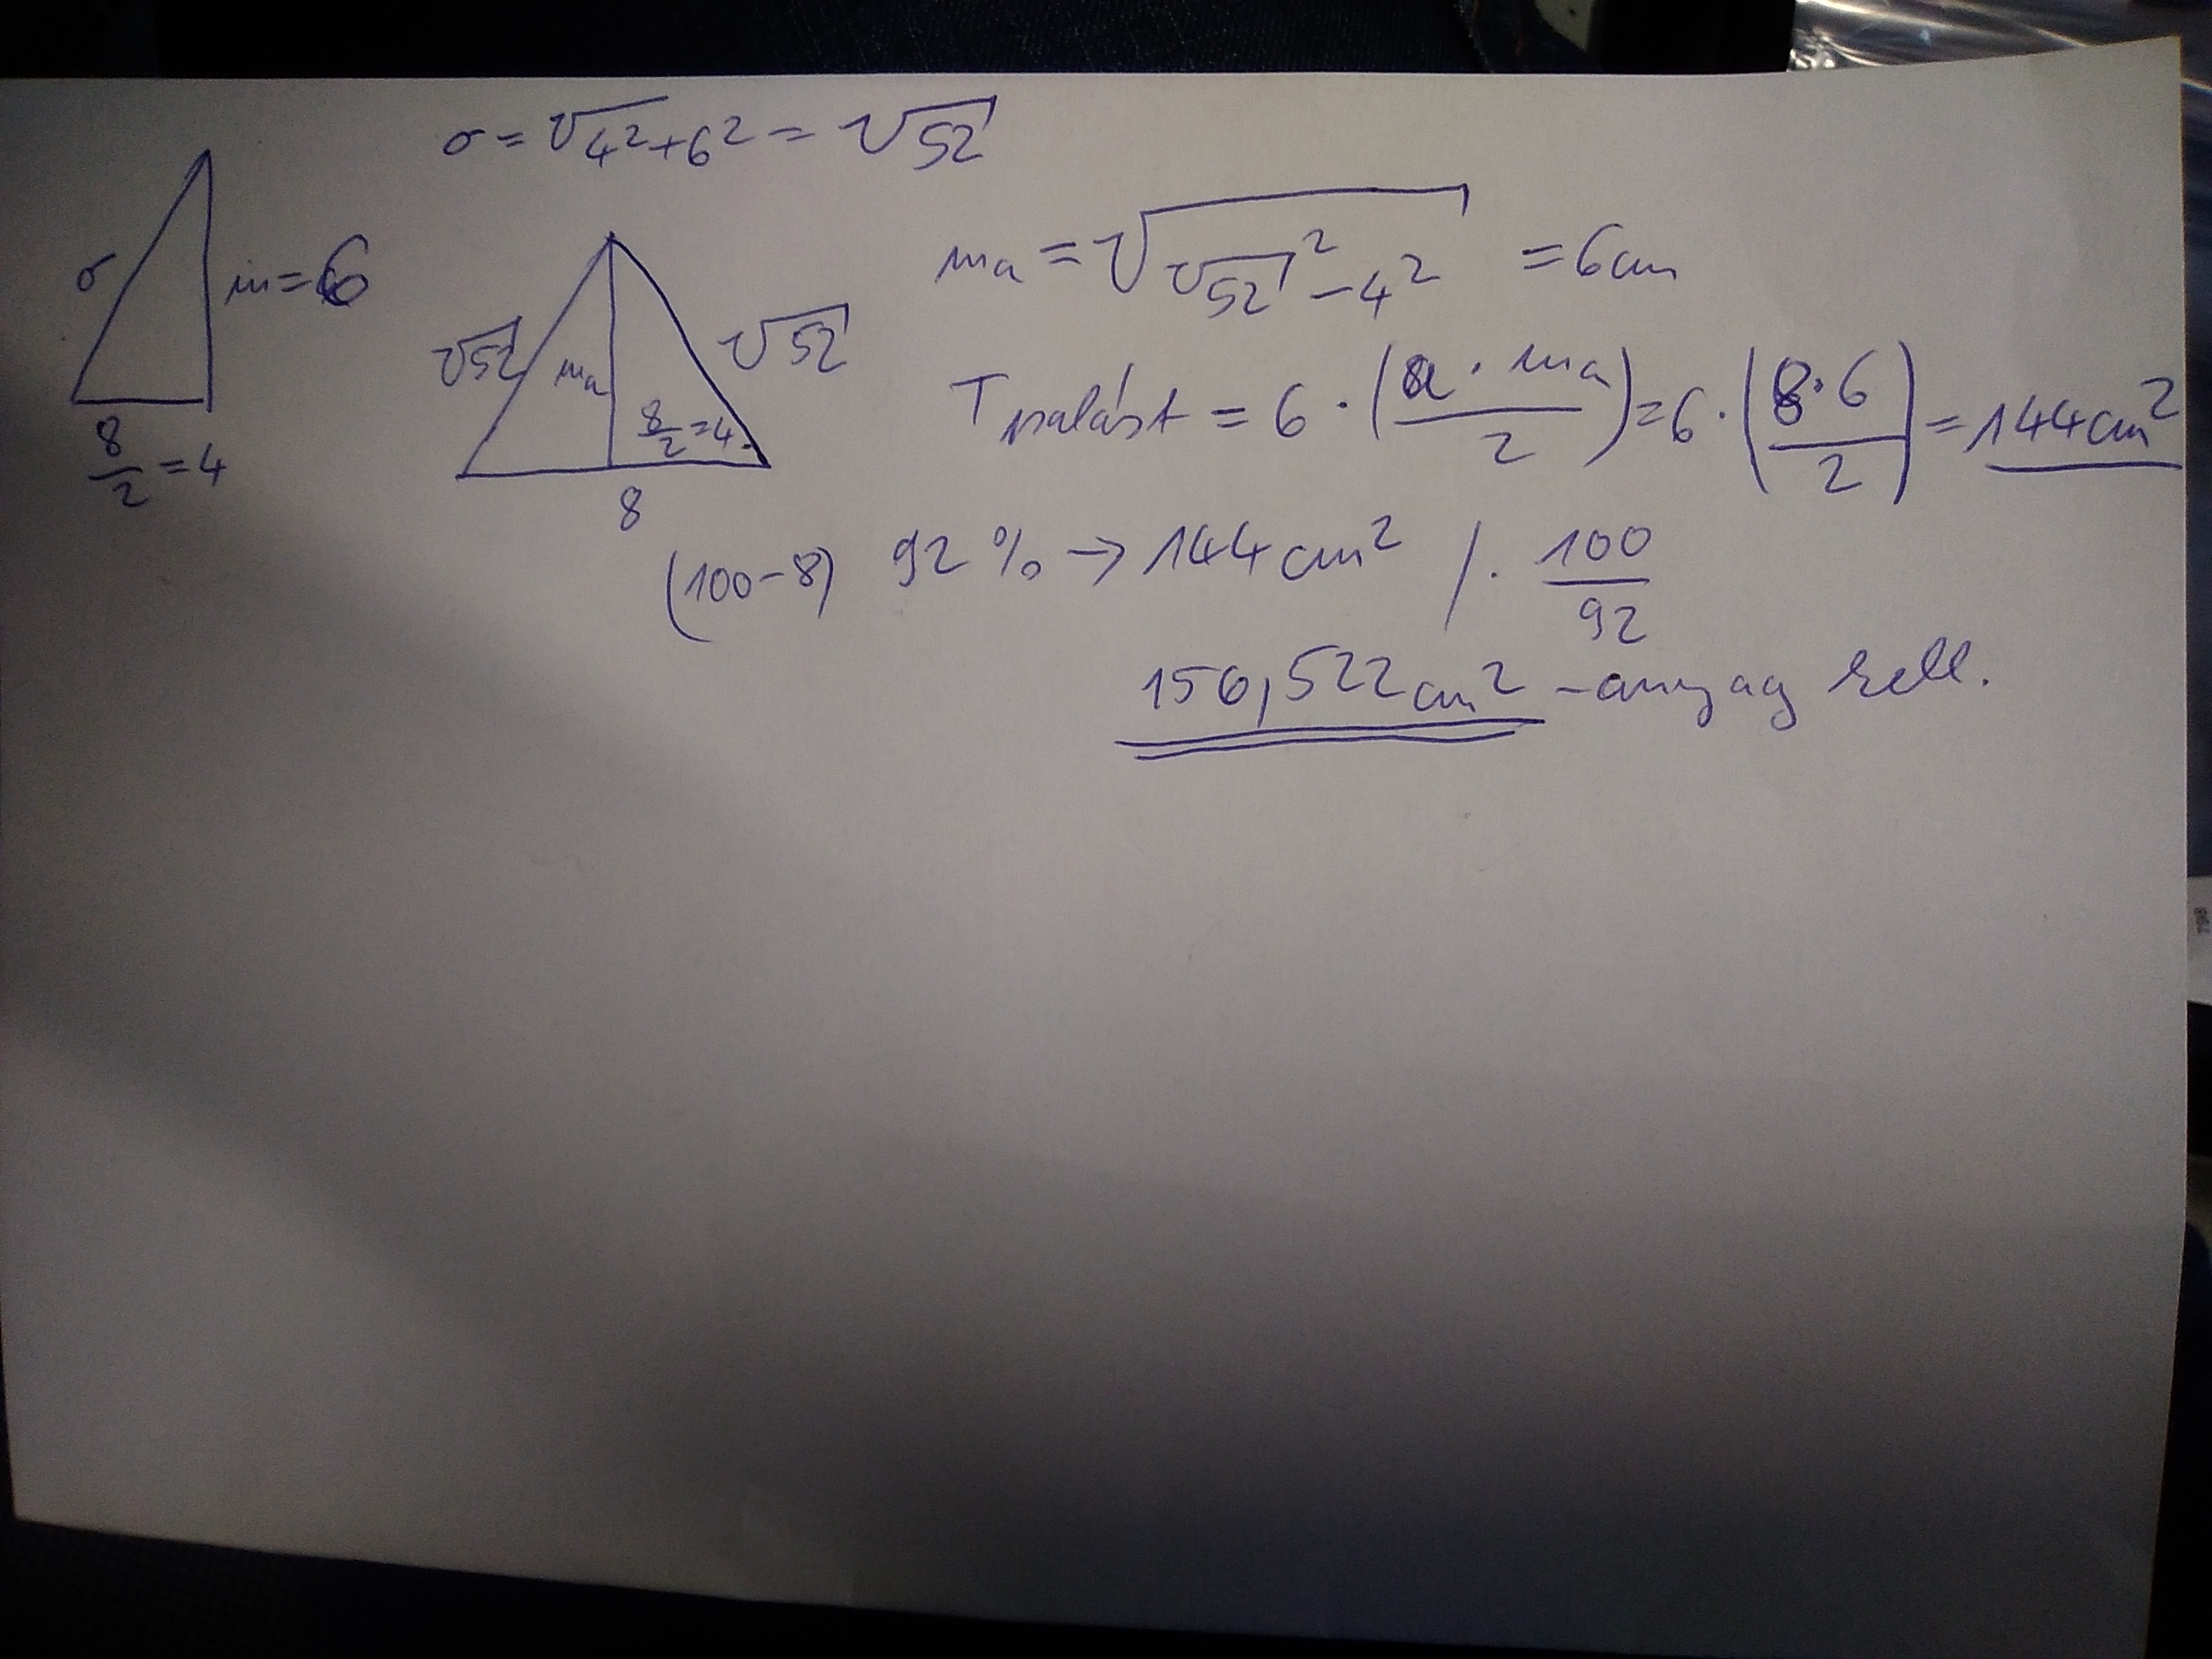 σ = √4²+6² = √52
σ
m=6
8/2 =4
√52
ma
√52
8/2 =4
8
ma = √(√52² - 4²) = 6cm
Tpalást = 6 · (a · ma / 2) = 6 · (8·6 / 2) = 144cm²
(100-8) 92% → 144cm² /· 100/92
156,522cm² - anyag kell.